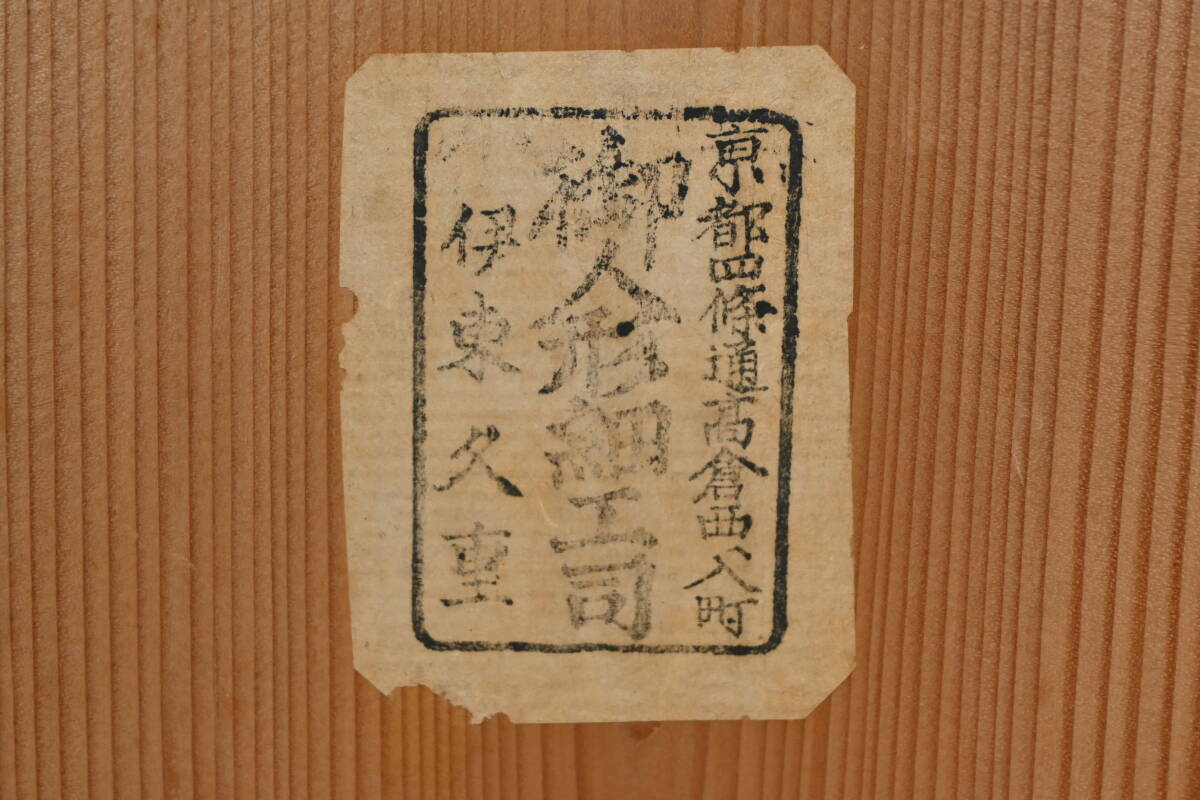 京都四條通高倉西入町
御人形細工司
伊東久重